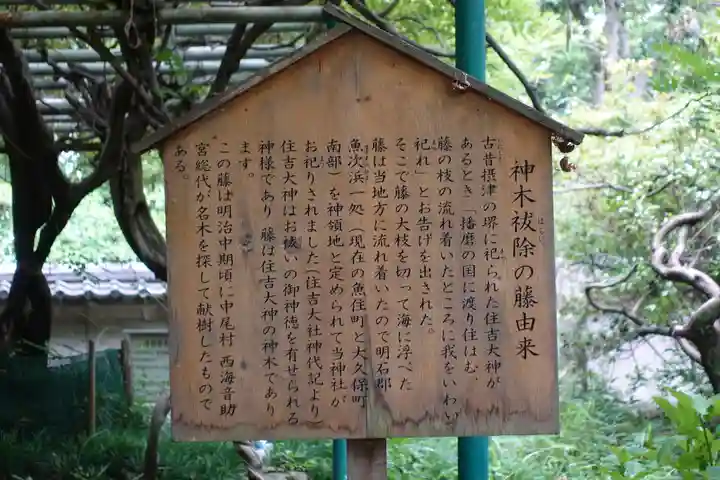 神木祓除の藤由来
はらい
古昔摂津の堺に祀られた住吉大神が
あるとき「播磨の国に渡り住はむ、
藤の枝の流れ着いたところに我をいわい
祀れ」とお告げを出された。
そこで藤の大枝を切って海に浮べた
藤は当地方に流れ着いたので明石郡
魚次浜一処(現在の魚住町と大久保町
南部)を神領地と定められて当神社が
お祀りされました(住吉大社神代記より
住吉大神はお祓いの御神徳を有せられる
神様であり 藤は住吉大神の神木であり
ます。
この藤は明治中期頃に中尾村 西海音助
宮総代が名木を探して献樹したもので
ある。